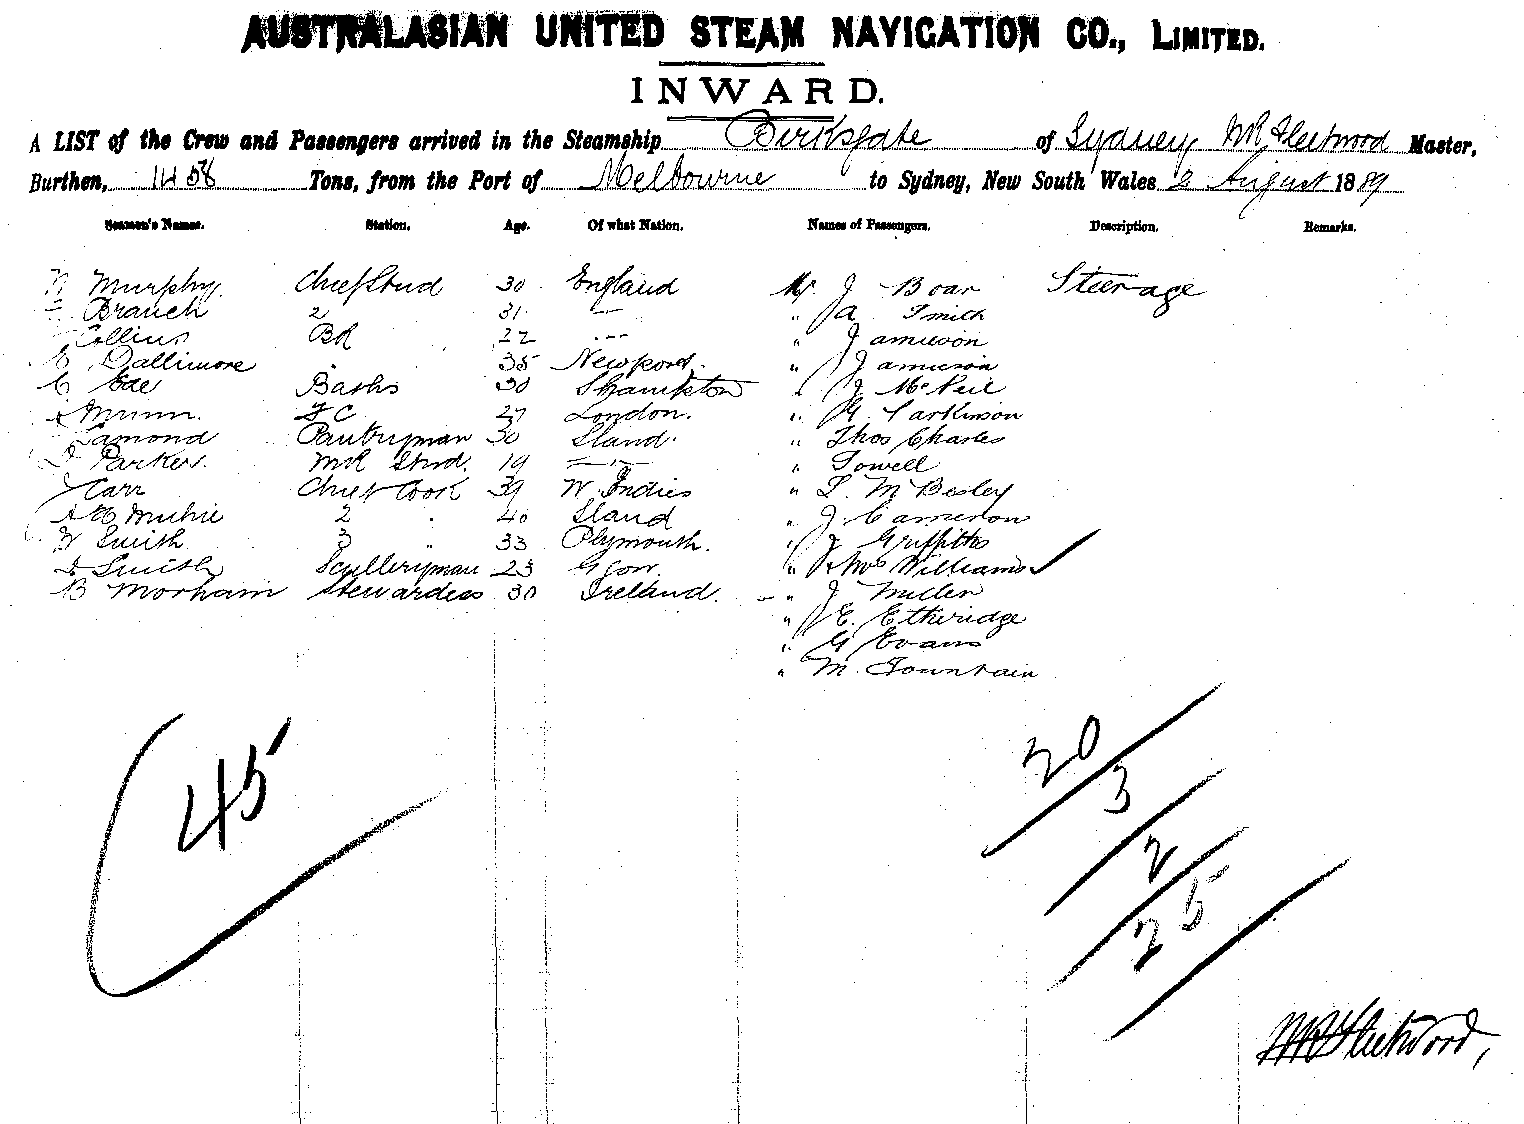 AUSTRALASIAN UNITED STEAM NAVIGATION CO., LIMITED.
INWARD.
A LIST of the Crew and Passengers arrived in the Steamship Birksgate of Sydney WR Fleetwood Master,
Burthen, 1458 Tons, from the Port of Melbourne to Sydney, New South Wales 2 August 1889
Seamen's Names. Station. Age. Of what Nation. Names of Passengers. Description. Remarks.
Murphy Chief Stud 30 England Mr J Boar Steerage
Branch 2 31 — " A Smith
Collins BR 22 --- " Jamieson
E Dallimore 35 Newport. " Jamieson
C Ede Baths 30 Shampton " J McNeil
Munn. FC 27 London. " G Parkinson
Lamond Pantryman 30 Sland. " Thos Charles
Parker. MR Stud. 19 " Towell
J Carr Chief Cook 39 W. Indies " L M Besley
2 " 40 Sland " J Cameron
W Smith 3 " 33 Plymouth. " J Griffiths
Smith Sculleryman 23 Gow. " Williams
B Morham Stewardess 30 Ireland. " J Miller
" E. Etheridge
" G Evans
" M. Fountain
45
20
3
2
25
WR Fleetwood,